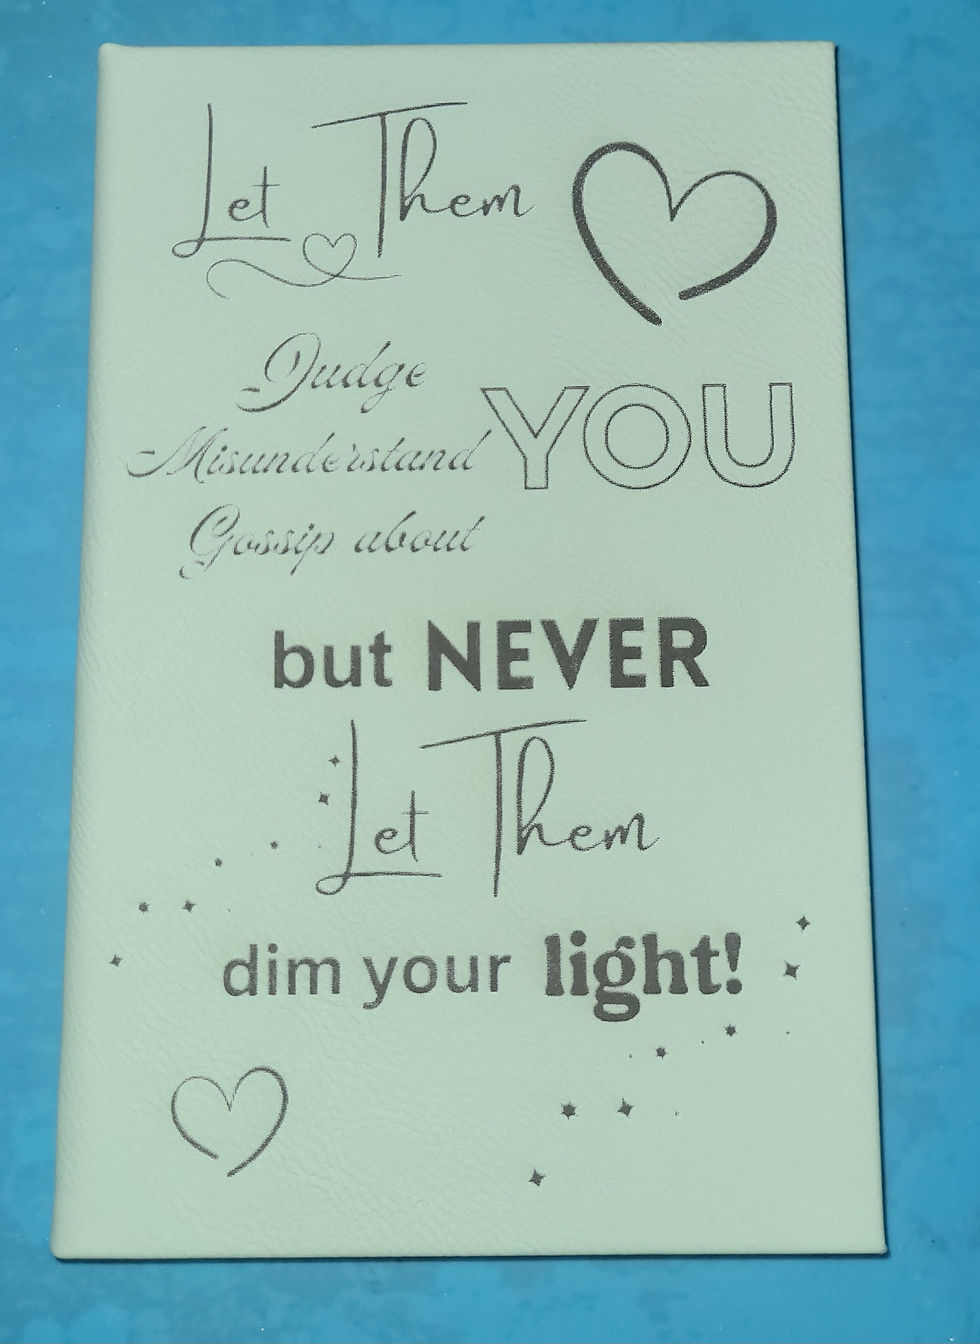 Let Them
Judge
Misunderstand YOU
Gossip about
but NEVER
Let Them
dim your light!